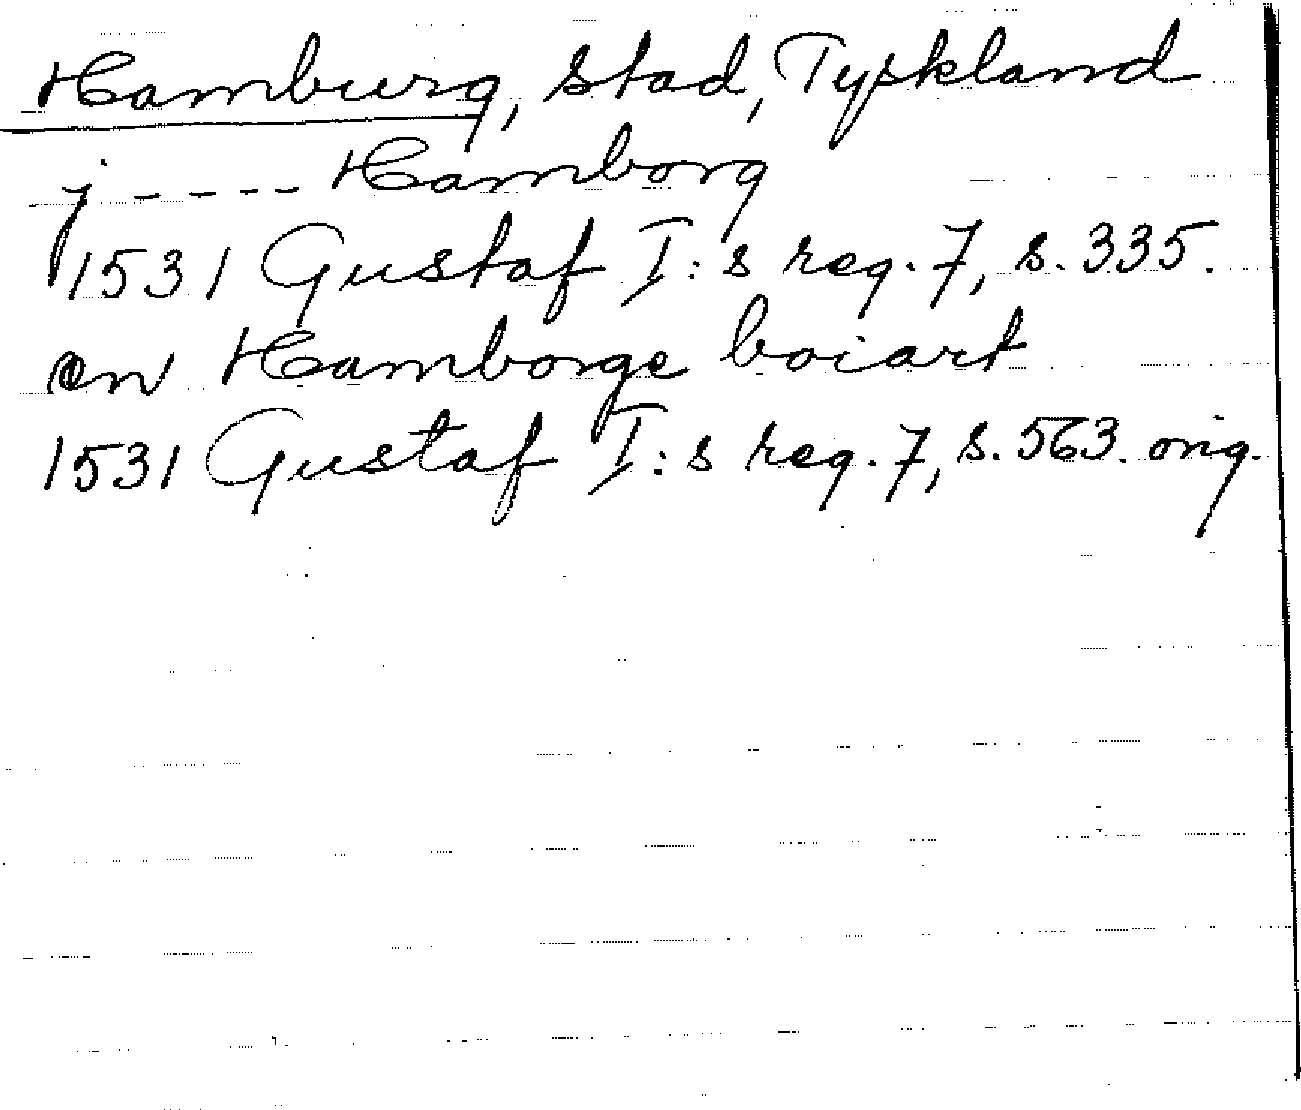 Hamburg, stad, Tyskland
j - - - - - Hamborg
1531 Gustaf I:s reg. 7, s. 335.
en Hamborge boiart
1531 Gustaf I:s reg. 7, s. 563. orig.